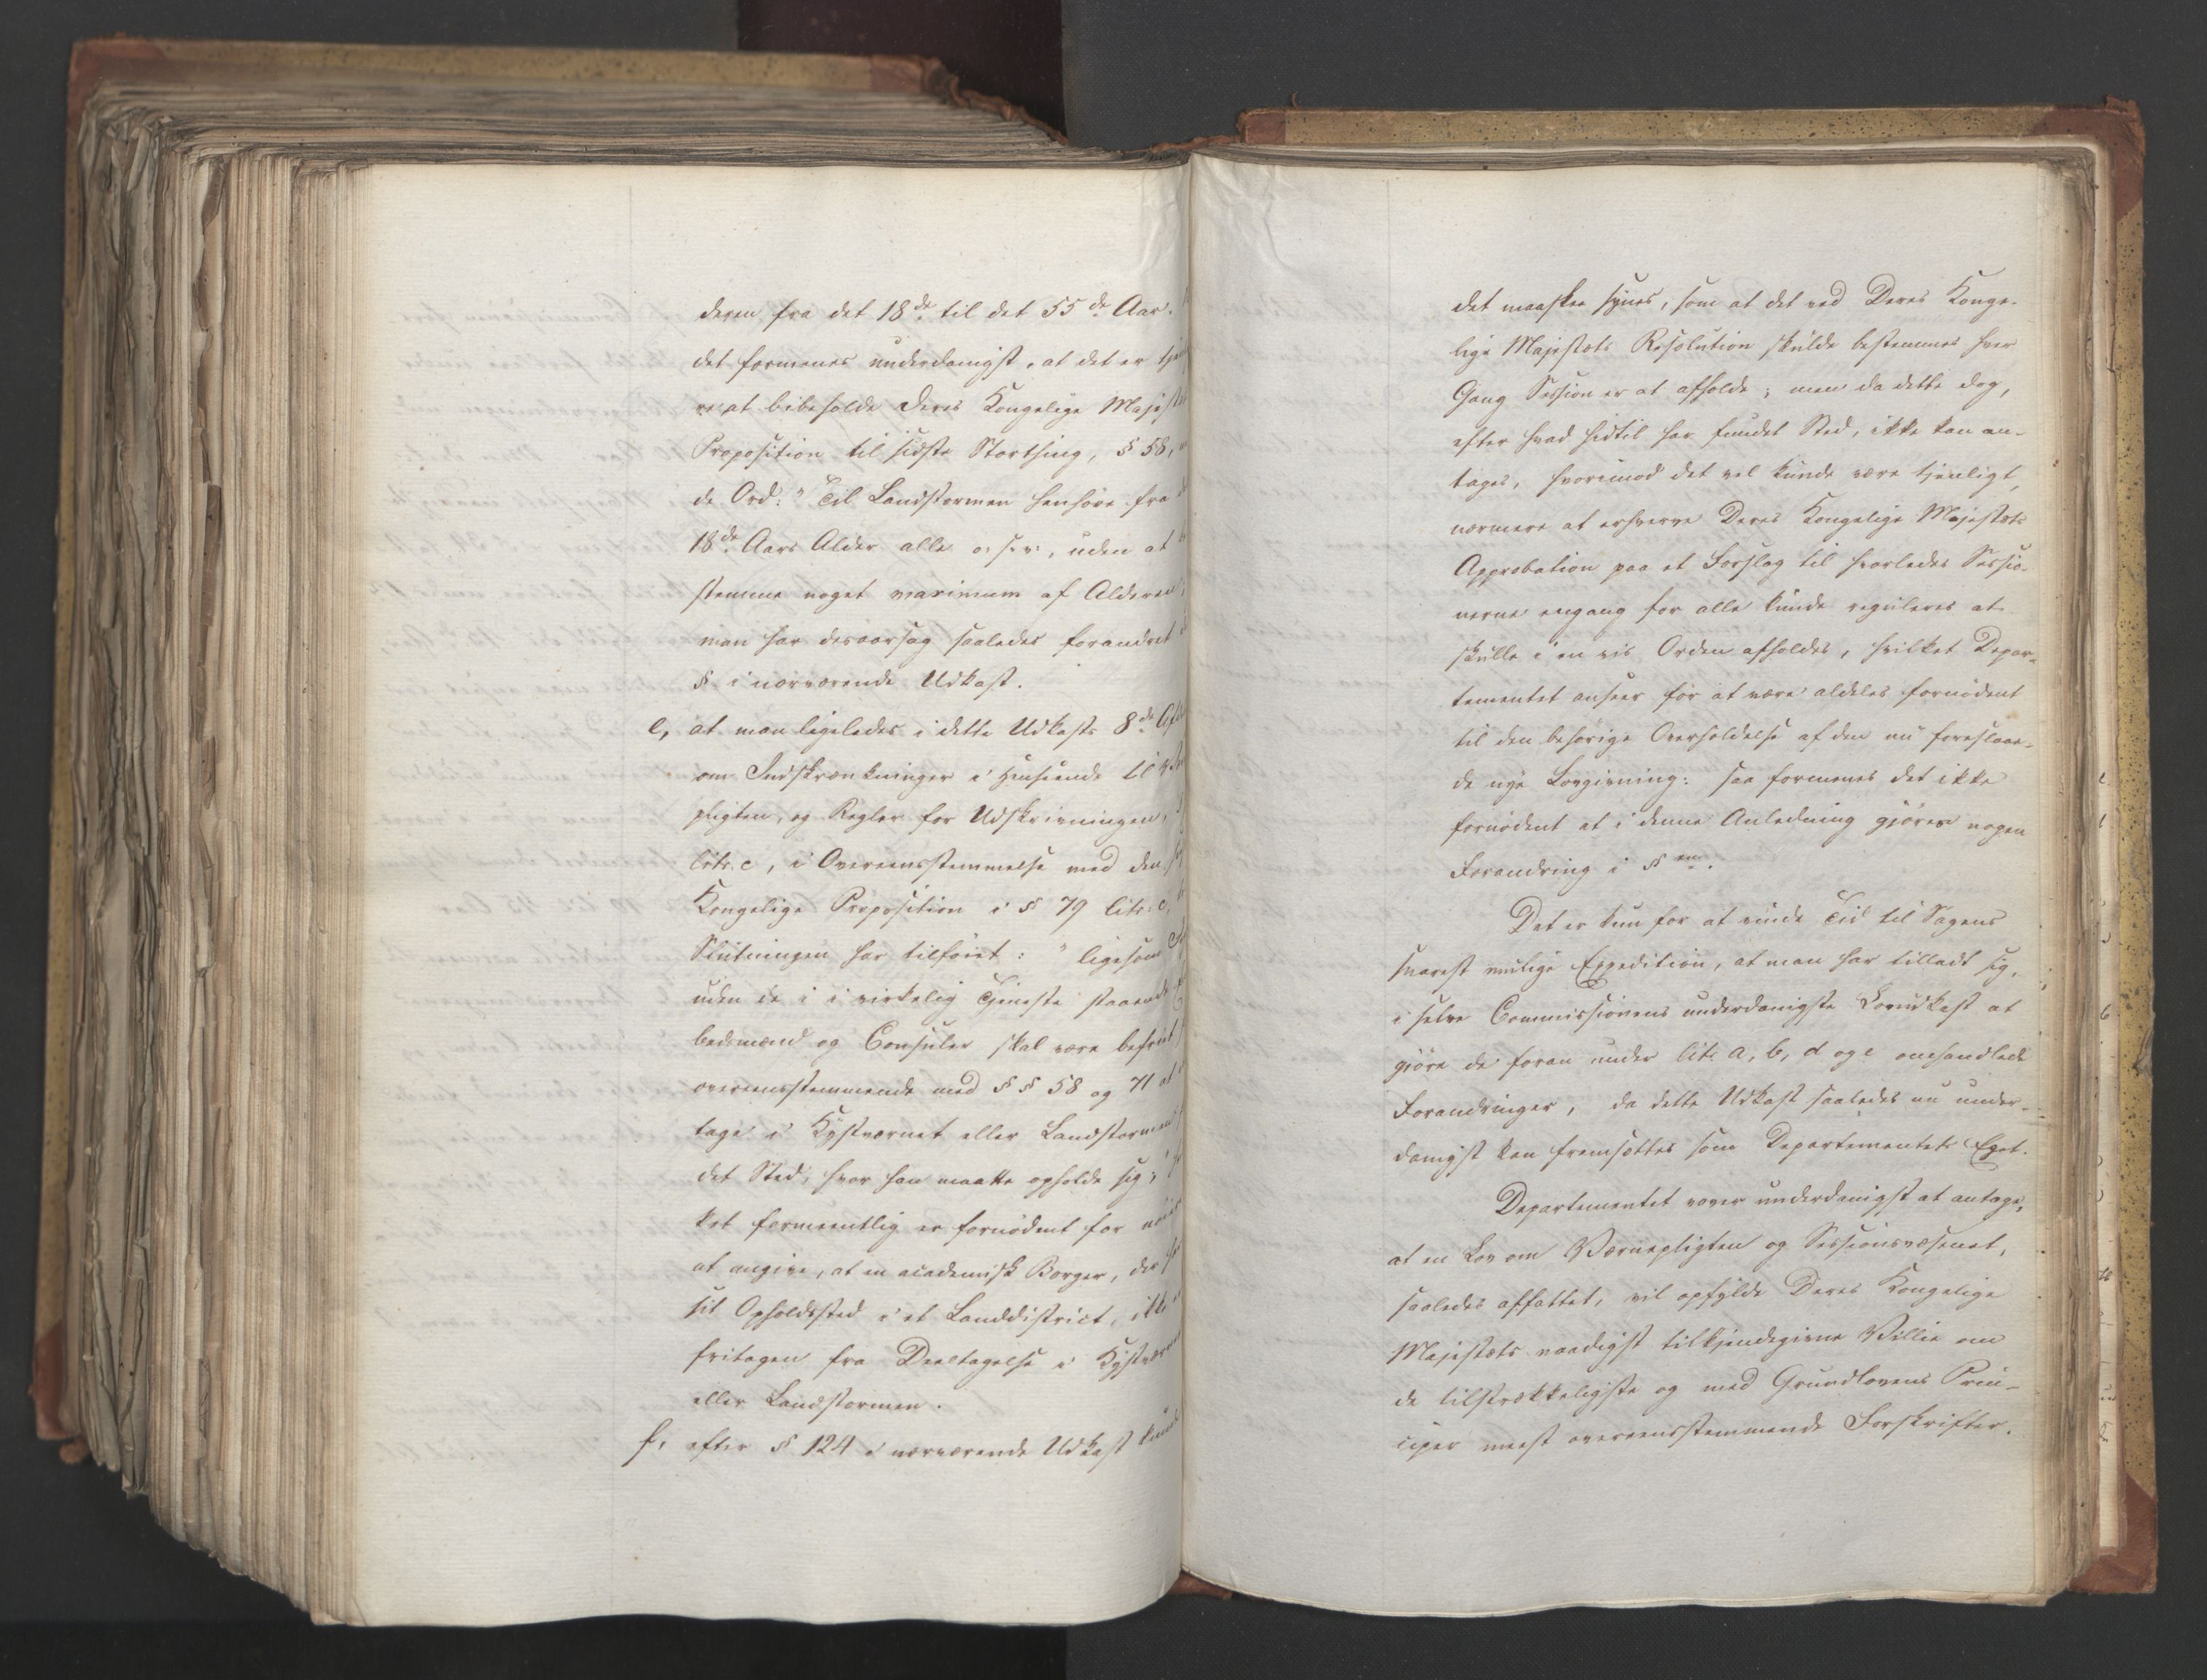 deren fra det 18de til det 55de Aar.
det formenes underdanigst, at det er
at bibeholde Deres Kongelige
Proposition til sidste Storthing, § 58,
de Ord: "Til Landstormen henhøre fra
18de Aars Alder alle o: s: v:, uden at
stemme noget maximum af Alderen,
man har desaarsag saaledes forandret
§ i nærværende Udkast.
e, at man ligeledes i dette Udkasts 8de
om Indskrænkninger i Henseende til
pligten, og Regler for Udskrivningen,
litr. c, i Overeensstemmelse med den
Kongelige Proposition i § 79 litr: c,
Slutningen har tilføiet: " ligesom
uden de i i virkelig Tjeneste staaende
bedsmænd og Consuler skal være befriet
overeensstemmende med §§ 58 og 71 at
tage i Kystværnet eller Landstormen
det Sted, hvor han maatte opholde sig;
ket formeentlig er fornødent for
at angive, at en academisk Borger, der
sit Opholdssted i et Landdistrict, ikke
fritagen fra Deeltagelse i
eller Landstormen.
f, efter § 124 i nærværende Udkast kunde
det maaskee synes, som at det ved Deres Konge-
lige Majestæts Resolution skulde bestemmes hver
Gang Session er at afholde; men da dette dog,
efter hvad hidtil har fundet Sted, ikke kan an-
tages, hvorimod det vel kunde være tjenligt,
nærmere at erhverve Deres Kongelige Majestæts
Approbation paa et Forslag til hvorledes Sessio-
nerne engang for alle kunde reguleres at
skulle i en vis Orden afholdes, hvilket Depar-
tementet anseer for at være aldeles fornødent
til den behørige Overholdelse af den nu foreslaae-
de nye Lovgivning: saa formenes det ikke
fornødent at i denne Anledning gjøres nogen
Forandring i §en.
Det er kun for at vinde Tid til Sagens
snarest mulige Expedition, at man har tilladt sig,
i selve Commissionens underdanigste Lovudkast at
gjøre de foran under litr. a, b, d og e omhandlede
Forandringer, da dette Udkast saaledes nu under-
danigst kan fremsættes som Departementets Eget.
Departementet vover underdanigst at antage,
at en Lov om Værnepligten og Sessionsvæsenet,
saaledes affattet, vil opfylde Deres Kongelige
Majestæts naadigst tilkjendegivne Villie om
de tilstrækkeligste og med Grundlovens Prin-
ciper meest overeensstemmende Forskrifter.